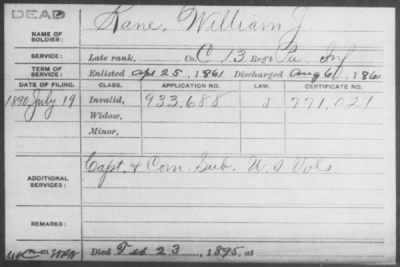 DEAD
NAME OF SOLDIER: Kane, William J.
SERVICE: Late rank, Co. C 13 Reg't Pa. Inf
TERM OF SERVICE: Enlisted Apr 25, 1861 Discharged Aug 6, 1861
DATE OF FILING. CLASS. APPLICATION NO. LAW. CERTIFICATE NO.
1890, July 19 Invalid, 933,688 8 771,021
Widow,
Minor,
ADDITIONAL SERVICES: Capt. & Com Sub. U S Vols
REMARKS:
Died Feb 23, 1895, at